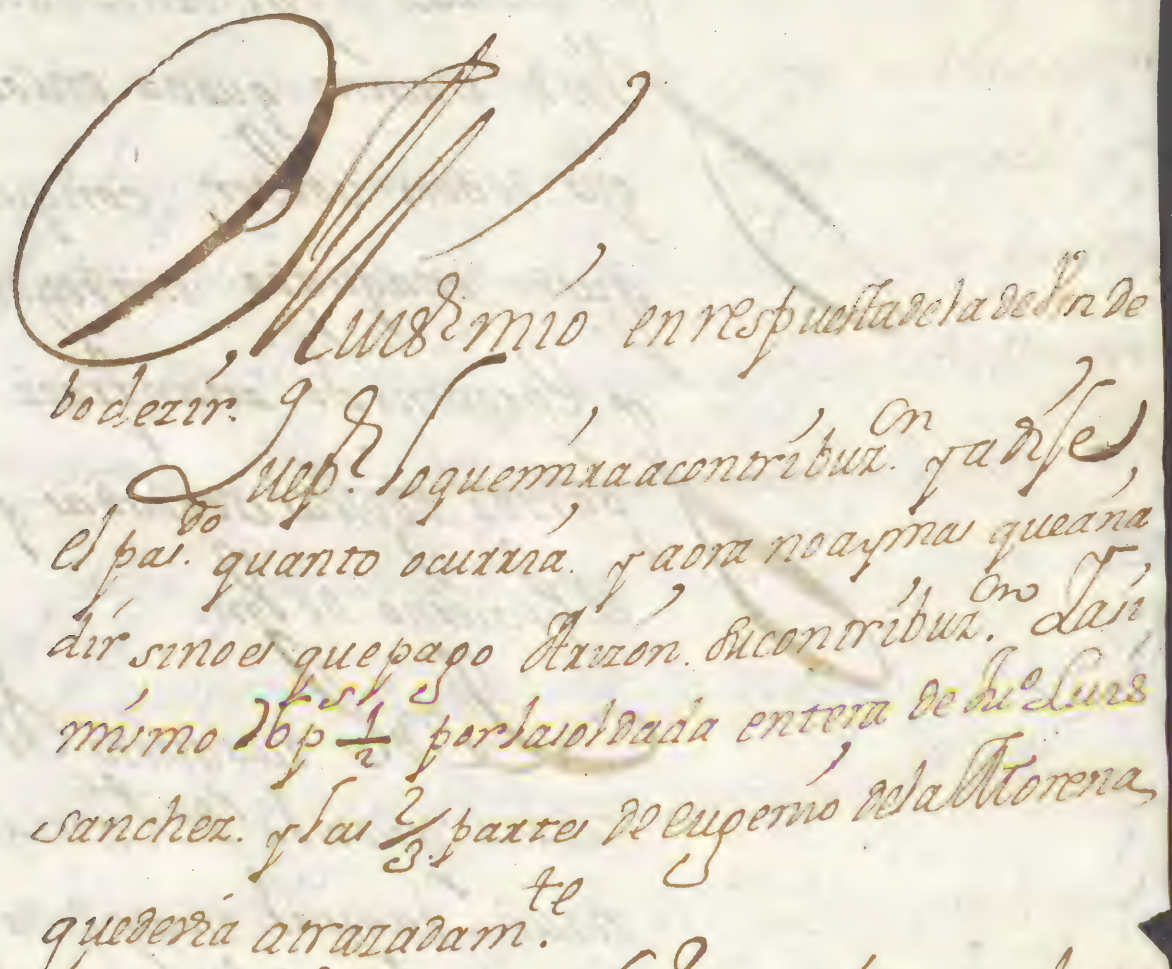 Mui Sr mio en respuesta de la de Vm de
bo dezir.
Que pr lo que mira a contribuzon. ya dije
el pasdo. quanto ocurria. y aora no ay mas que aña
dir sino es que pago Arizon. su contribuzon. Y asi
mismo 26ps 1/2 por la soldada entera de Luis
sanchez. y las 2/3 partes de eugenio de la Morena
que devia atrazadamte.